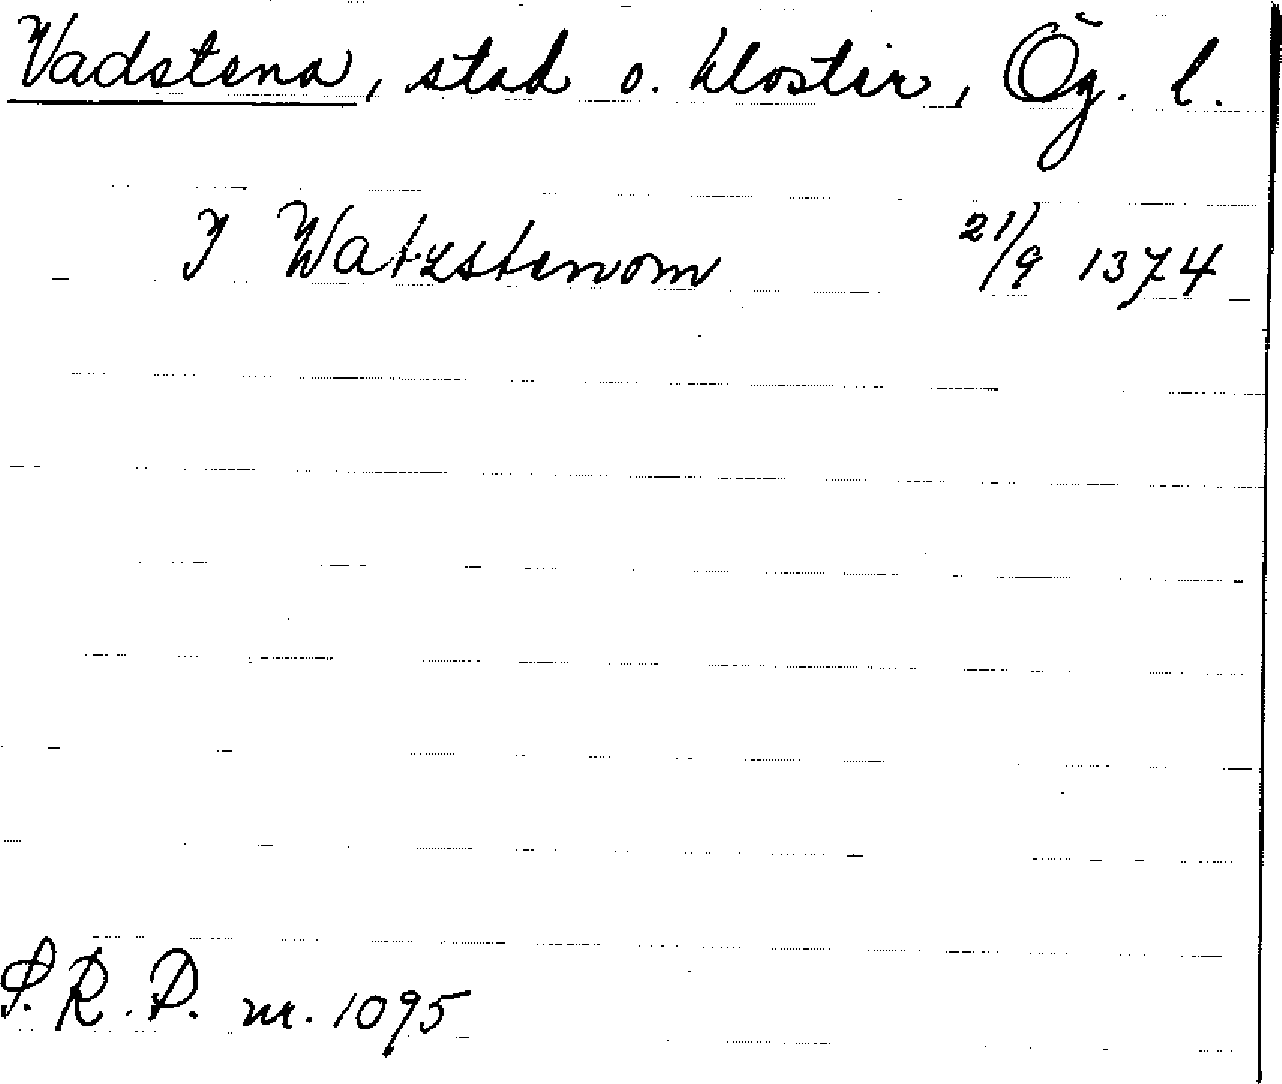 Vadstena, stad o. kloster, Ög. l.
I Watzstenom 21/9 1374
S.R.P. nr. 1095